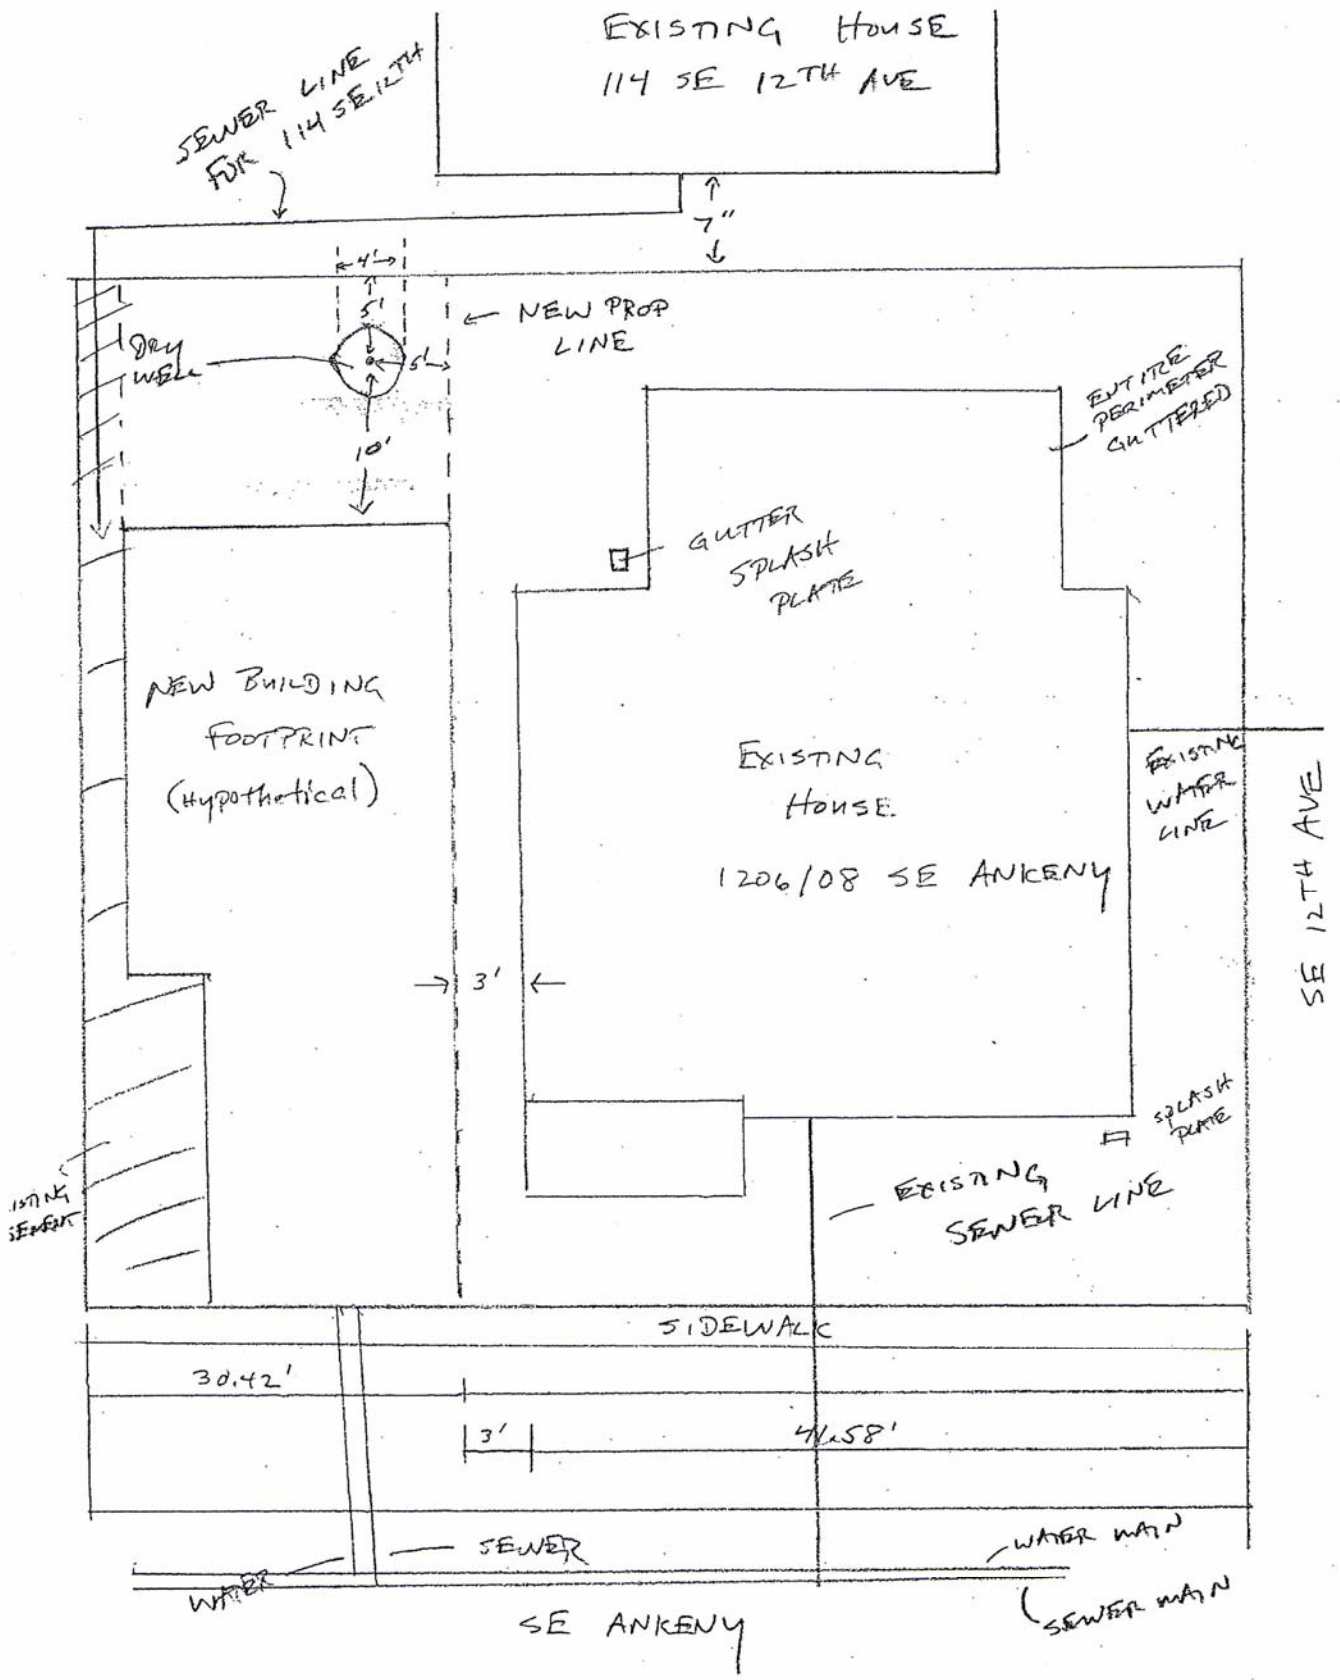 EXISTING HOUSE
114 SE 12TH AVE
SEWER LINE
FOR 114 SE 12TH
7"
4'
5'
NEW PROP
LINE
DRY
WELL
5'
10'
ENTIRE
PERIMETER
GUTTERED
GUTTER
SPLASH
PLATE
NEW BUILDING
FOOTPRINT
(Hypothetical)
EXISTING
HOUSE
1206/08 SE ANKENY
EXISTING
WATER
LINE
SE 12TH AVE
3'
SPLASH
PLATE
ISTING
SEMENT
EXISTING
SEWER LINE
SIDEWALK
30.42'
3'
SEWER
WATER
WATER MAIN
SEWER MAIN
SE ANKENY